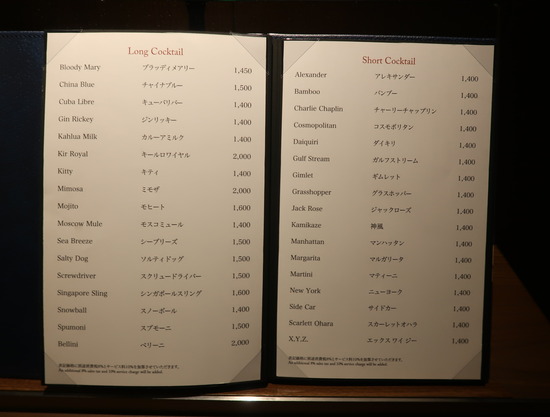 Long Cocktail
Bloody Mary ブラッディメアリー 1,450
China Blue チャイナブルー 1,500
Cuba Libre キューバリバー 1,400
Gin Rickey ジンリッキー 1,400
Kahlua Milk カルーアミルク 1,400
Kir Royal キールロワイヤル 2,000
Kitty キティ 1,400
Mimosa ミモザ 2,000
Mojito モヒート 1,600
Moscow Mule モスコミュール 1,400
Sea Breeze シーブリーズ 1,500
Salty Dog ソルティドッグ 1,500
Screwdriver スクリュードライバー 1,500
Singapore Sling シンガポールスリング 1,600
Snowball スノーボール 1,400
Spumoni スプモーニ 1,500
Bellini ベリーニ 2,000
Short Cocktail
Alexander アレキサンダー 1,400
Bamboo バンブー 1,400
Charlie Chaplin チャーリーチャップリン 1,400
Cosmopolitan コスモポリタン 1,400
Daiquiri ダイキリ 1,400
Gulf Stream ガルフストリーム 1,400
Gimlet ギムレット 1,400
Grasshopper グラスホッパー 1,400
Jack Rose ジャックローズ 1,400
Kamikaze 神風 1,400
Manhattan マンハッタン 1,400
Margarita マルガリータ 1,400
Martini マティーニ 1,400
New York ニューヨーク 1,400
Side Car サイドカー 1,400
Scarlett Ohara スカーレットオハラ 1,400
X.Y.Z. エックス ワイ ジー 1,400